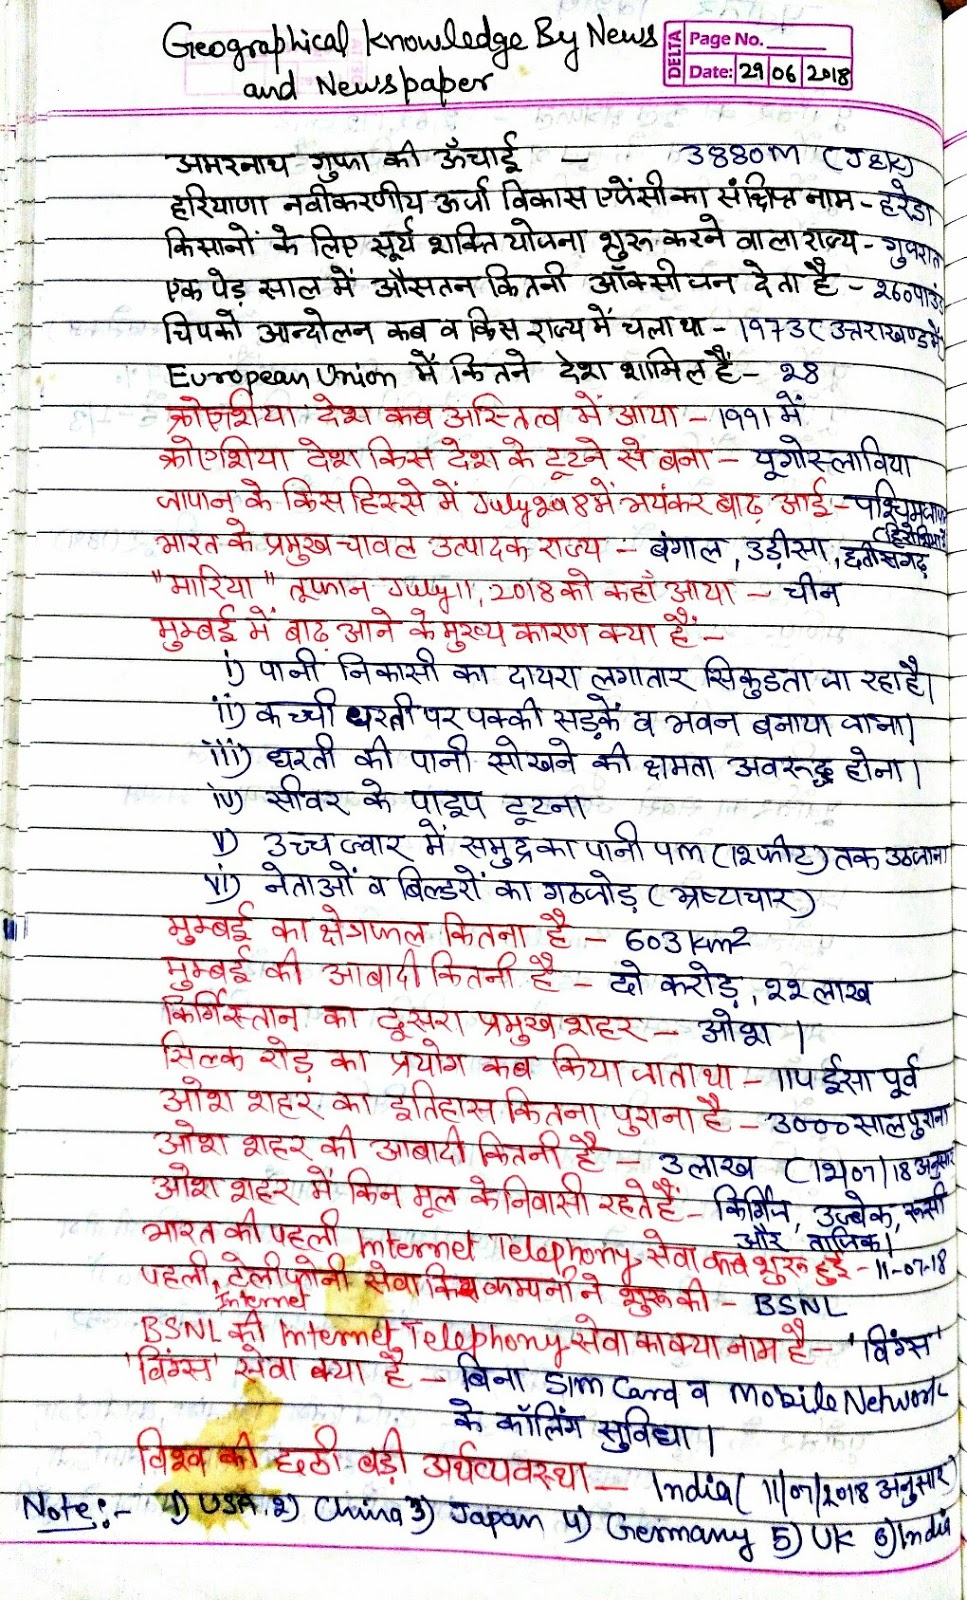 Geographical knowledge By News
and Newspaper
DELTA
Page No.
Date: 29 06 2018
अमरनाथ गुफा की ऊँचाई - 3880m (J&K)
हरियाणा नवीकरणीय ऊर्जा विकास एजेंसी का संक्षिप्त नाम - हरेडा
किसानों के लिए सूर्य शक्ति योजना शुरू करने वाला राज्य - गुजरात
एक पेड़ साल में औसतन कितनी ऑक्सीजन देता है - 260 पाउंड
चिपको आन्दोलन कब व किस राज्य में चला था - 1973 (उत्तराखण्ड में)
European Union में कितने देश शामिल हैं - 28
क्रोएशिया देश कब अस्तित्व में आया - 1991 में
क्रोएशिया देश किस देश के टूटने से बना - यूगोस्लाविया
जापान के किस हिस्से में July 2018 में भयंकर बाढ़ आई - पश्चिम जापान
(हिरोशिमा)
भारत के प्रमुख चावल उत्पादक राज्य - बंगाल, उड़ीसा, छत्तीसगढ़
"मारिया" तूफान July 11, 2018 को कहाँ आया - चीन
मुम्बई में बाढ़ आने के मुख्य कारण क्या हैं -
i) पानी निकासी का दायरा लगातार सिकुडता जा रहा है।
ii) कच्ची धरती पर पक्की सड़कें व भवन बनाया जाना।
iii) धरती की पानी सोखने की क्षमता अवरूद्ध होना।
iv) सीवर के पाइप टूटना
v) उच्च ज्वार में समुद्र का पानी 5m (12 फीट) तक उठ जाना
vi) नेताओं व बिल्डरों का गठजोड़ (भ्रष्टाचार)
मुम्बई का क्षेत्रफल कितना है - 603 km²
मुम्बई की आबादी कितनी है - दो करोड़, 22 लाख
किर्गिस्तान का दूसरा प्रमुख शहर - ओश।
सिल्क रोड़ का प्रयोग कब किया जाता था - 115 ईसा पूर्व
ओश शहर का इतिहास कितना पुराना है - 3000 साल पुराना
ओश शहर की आबादी कितनी है - 3 लाख (12/07/18 अनुसार
ओश शहर में किन मूल के निवासी रहते हैं - किर्गिज, उज्बेक, रूसी
और ताजिक।
भारत की पहली Internet Telephony सेवा कब शुरू हुई - 11-07-18
पहली Internet टेलीफोनी सेवा किस कम्पनी ने शुरू की - BSNL
BSNL की Internet Telephony सेवा का क्या नाम है - 'विंग्स'
'विंग्स' सेवा क्या है - बिना SIM Card व Mobile Network
के कॉलिंग सुविधा।
विश्व की छठी बड़ी अर्थव्यवस्था - India (11/07/2018 अनुसार)
Note:- 1) USA 2) China 3) Japan 4) Germany 5) UK 6) India